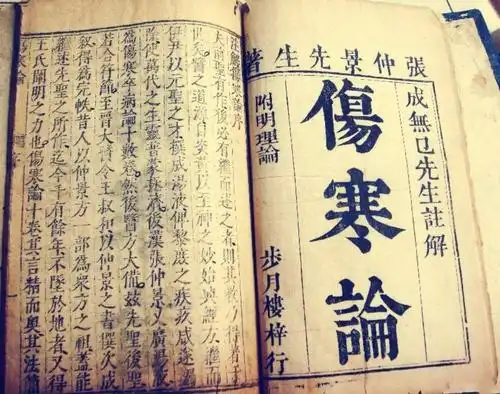 張仲景先生著
成無已先生註解
傷寒論
附明理論
步月樓梓行
註解傷寒論序
夫前聖有作後必有繼而述之者則其教乃得著于
世矣醫之道源自炎黃以至神之妙始興經方繼而
伊尹以元聖之才撰成湯液俾黎庶之疾疚咸遂蠲
除使萬代之生靈普蒙拯濟後漢張仲景又廣湯液
為傷寒卒病論十數卷然後醫方大備茲先聖後聖
若合符節至晉太醫令王叔和以仲景之書撰次成
叙得為完帙昔人以仲景方一部為衆方之祖蓋能
繼述先聖之所作迄今千有餘年不墜於地者又得
王氏闡明之力也傷寒論十卷其言精而奧其法簡
傷寒論